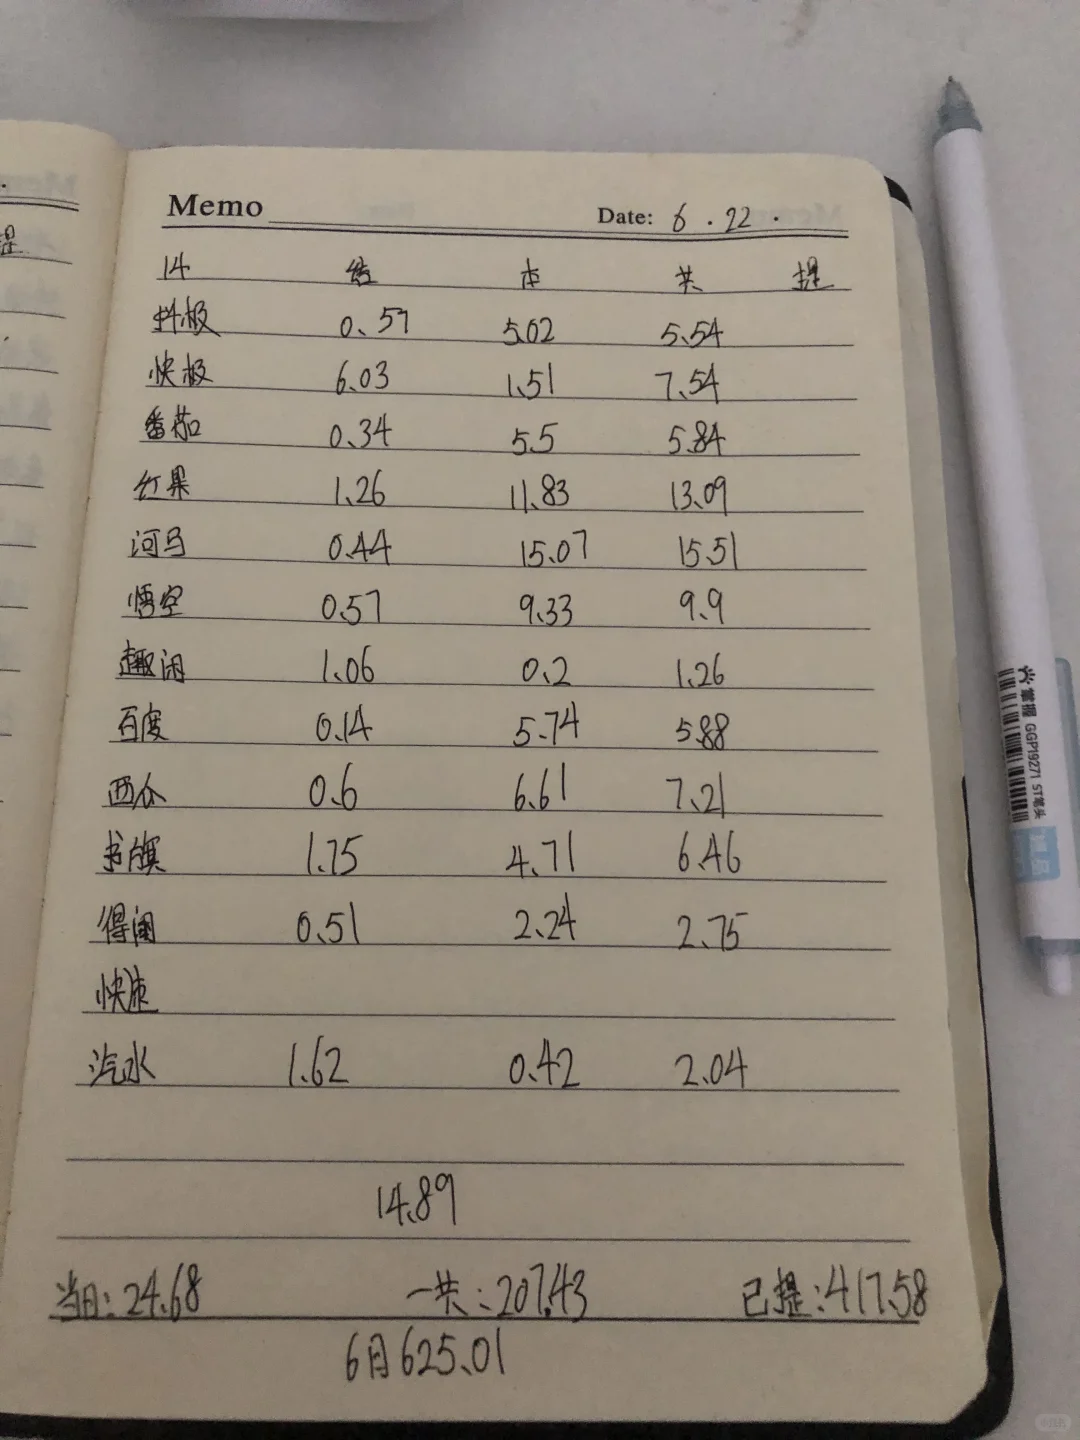 Memo Date: 6.22.
14 给 本 共 提
抖极 0.57 5.02 5.54
快极 6.03 1.51 7.54
番茄 0.34 5.5 5.84
红果 1.26 11.83 13.09
河马 0.44 15.07 15.51
悟空 0.57 9.33 9.9
趣闲 1.06 0.2 1.26
百度 0.14 5.74 5.88
西瓜 0.6 6.61 7.21
书旗 1.75 4.71 6.46
得闲 0.51 2.24 2.75
快速
汽水 1.62 0.42 2.04
14.89
当日:24.68 一共:207.43 已提:417.58
6月625.01
提
掌握 GGP19271 ST笔头